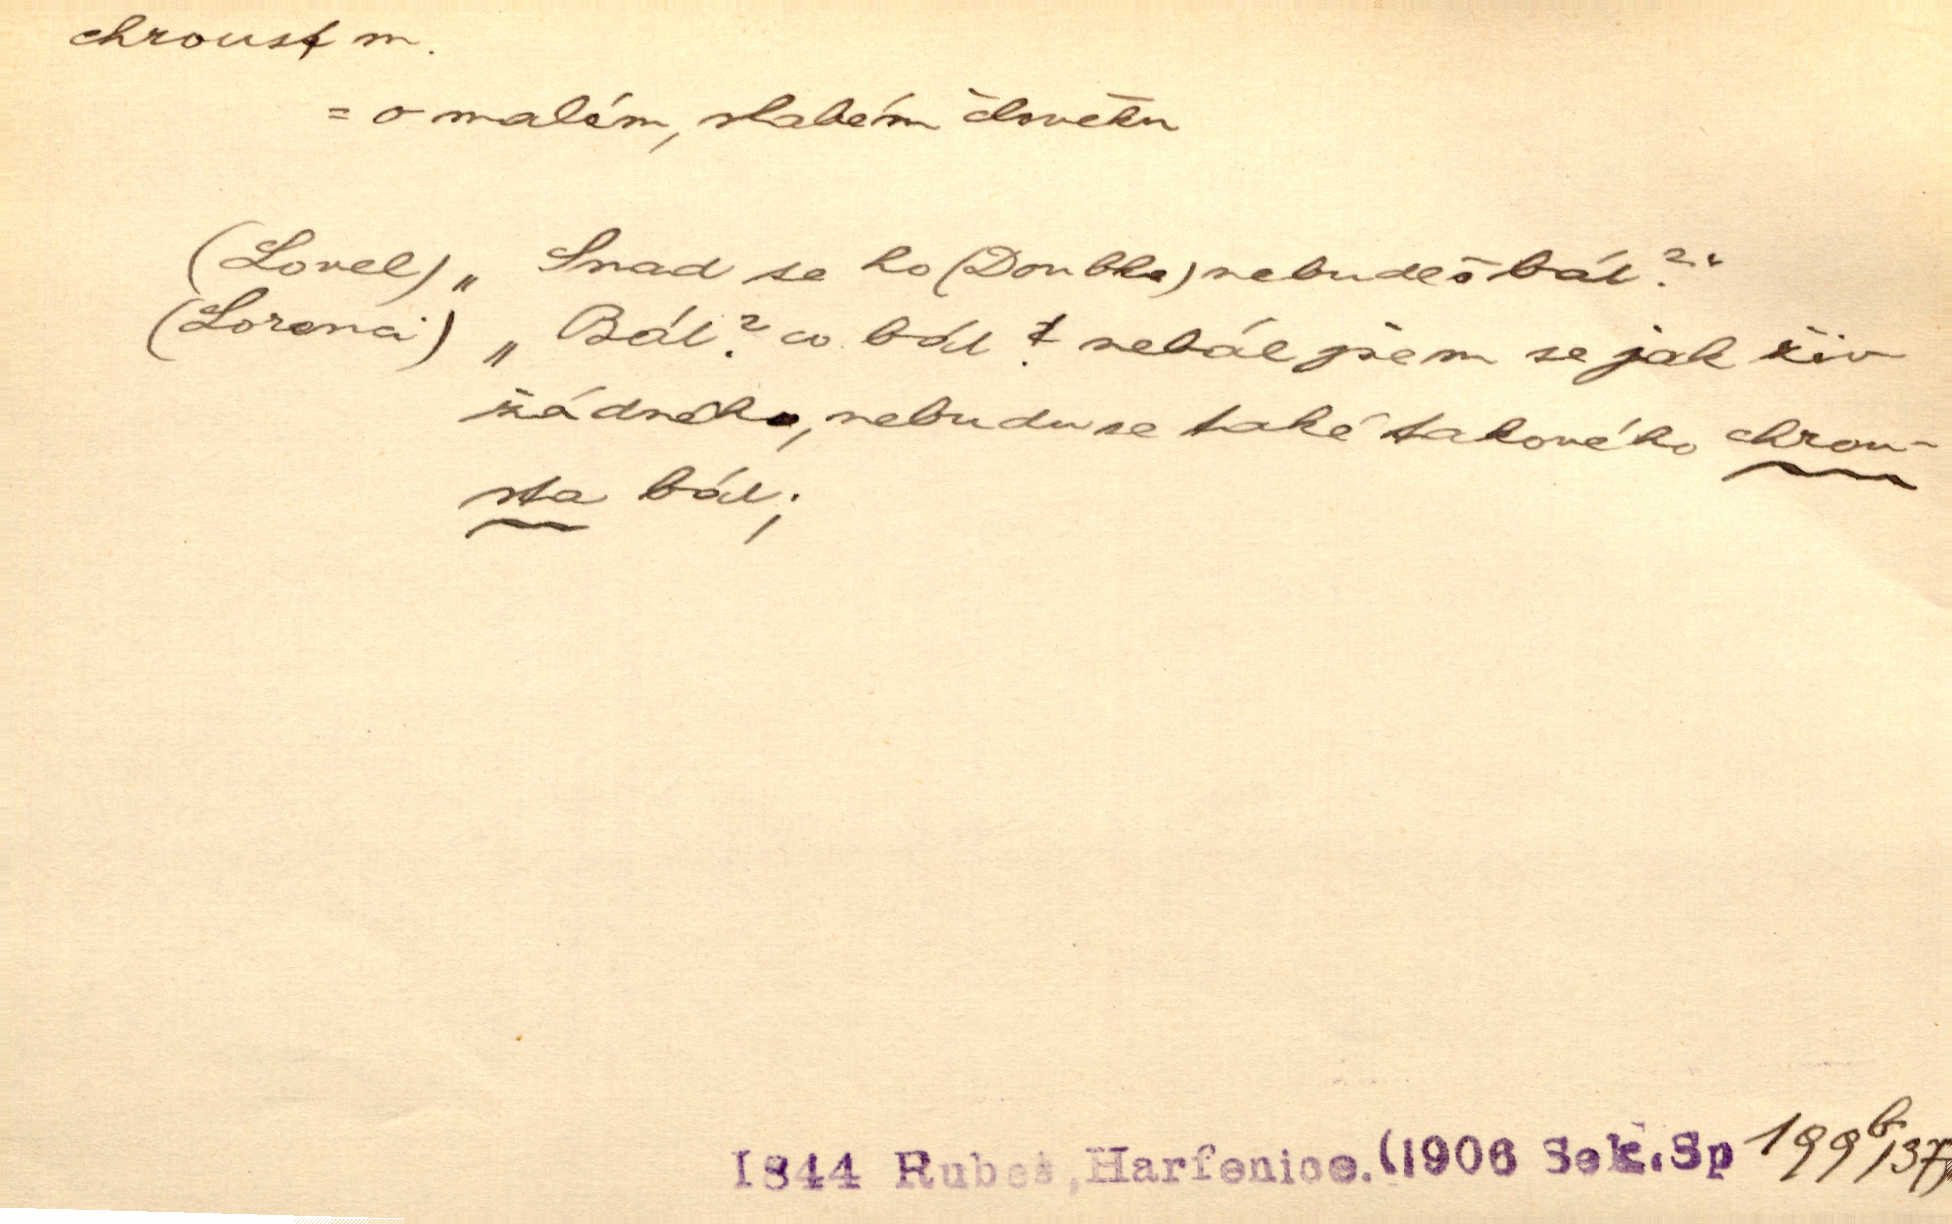 chroust m.
= o malém, slabém člověku
(Lovel) „Snad se ho (Doubka) nebudeš bát?“
(Lorenci) „Bát? co bát? nebál jsem se jak živ
žádného, nebudu se také takového chrou-
sta bát;
1844 Rubeš, Harfenice. (1906 Seb. Sp 199b,37)